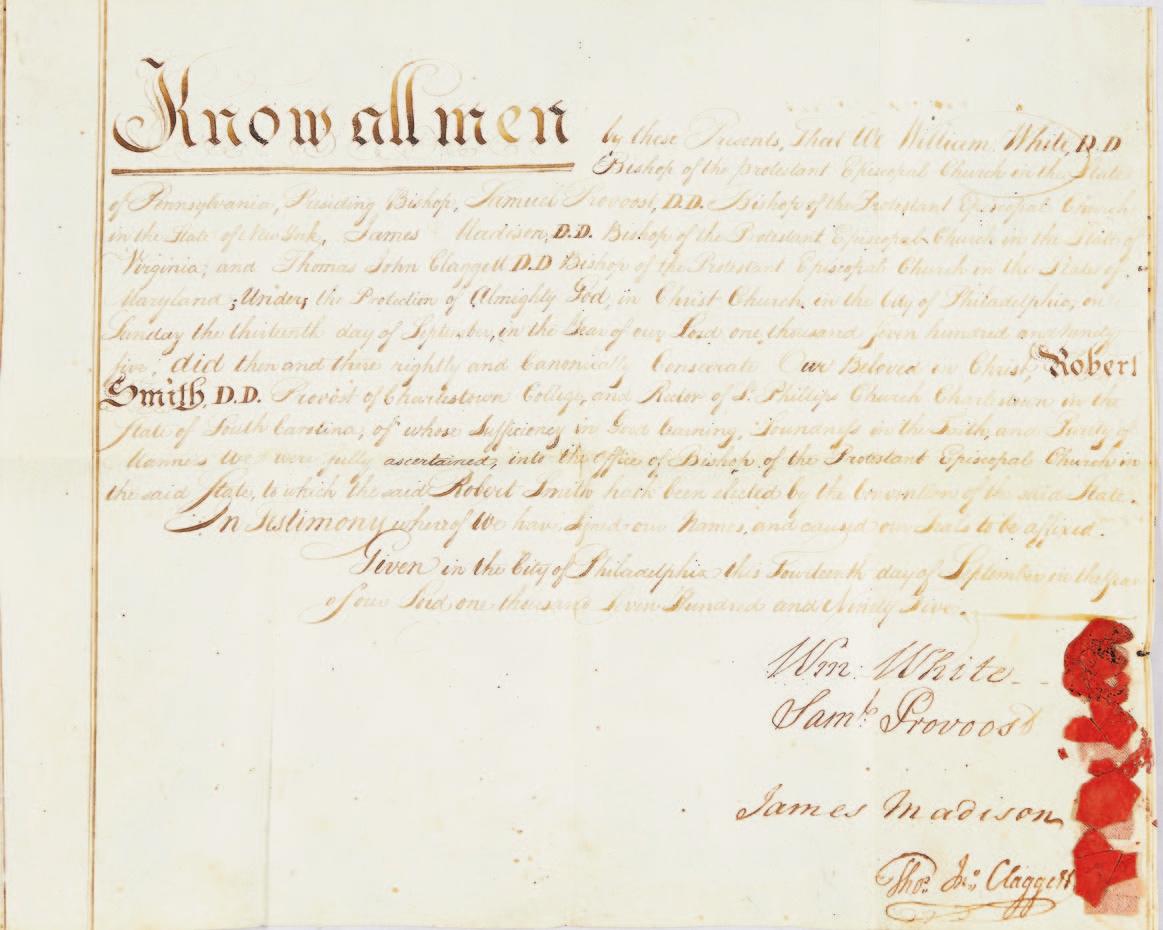 Know all men by these Presents, That We William White, D.D
Bishop of the Protestant Episcopal Church in the State
of Pennsylvania, Presiding Bishop, Samuel Provoost, D.D. Bishop of the Protestant Episcopal Church
in the State of New York, James Madison, D.D. Bishop of the Protestant Episcopal Church in the State of
Virginia; and Thomas John Claggett D.D Bishop of the Protestant Episcopal Church in the State of
Maryland; Under the Protection of Almighty God, in Christ Church, in the City of Philadelphia, on
Sunday the thirteenth day of September, in the Year of our Lord one thousand seven hundred and ninety
five, did then and there rightly and Canonically Consecrate Our Beloved in Christ, Robert
Smith, D.D. Provost of Charlestown College, and Rector of St. Phillips Church Charlestown in the
State of South Carolina, of whose Sufficiency in Good Learning, Soundness in the Faith, and Purity of
Manners We were fully ascertained, into the Office of Bishop of the Protestant Episcopal Church in
the said State, to which the said Robert Smith hath been elected by the Convention of the said State.
In Testimony whereof We have signed our Names, and caused our Seals to be affixed.
Given in the City of Philadelphia this Fourteenth day of September in the Year
of our Lord one thousand Seven Hundred and Ninety Five.
Wm White
Saml. Provoost
James Madison
Thos. Jno. Claggett